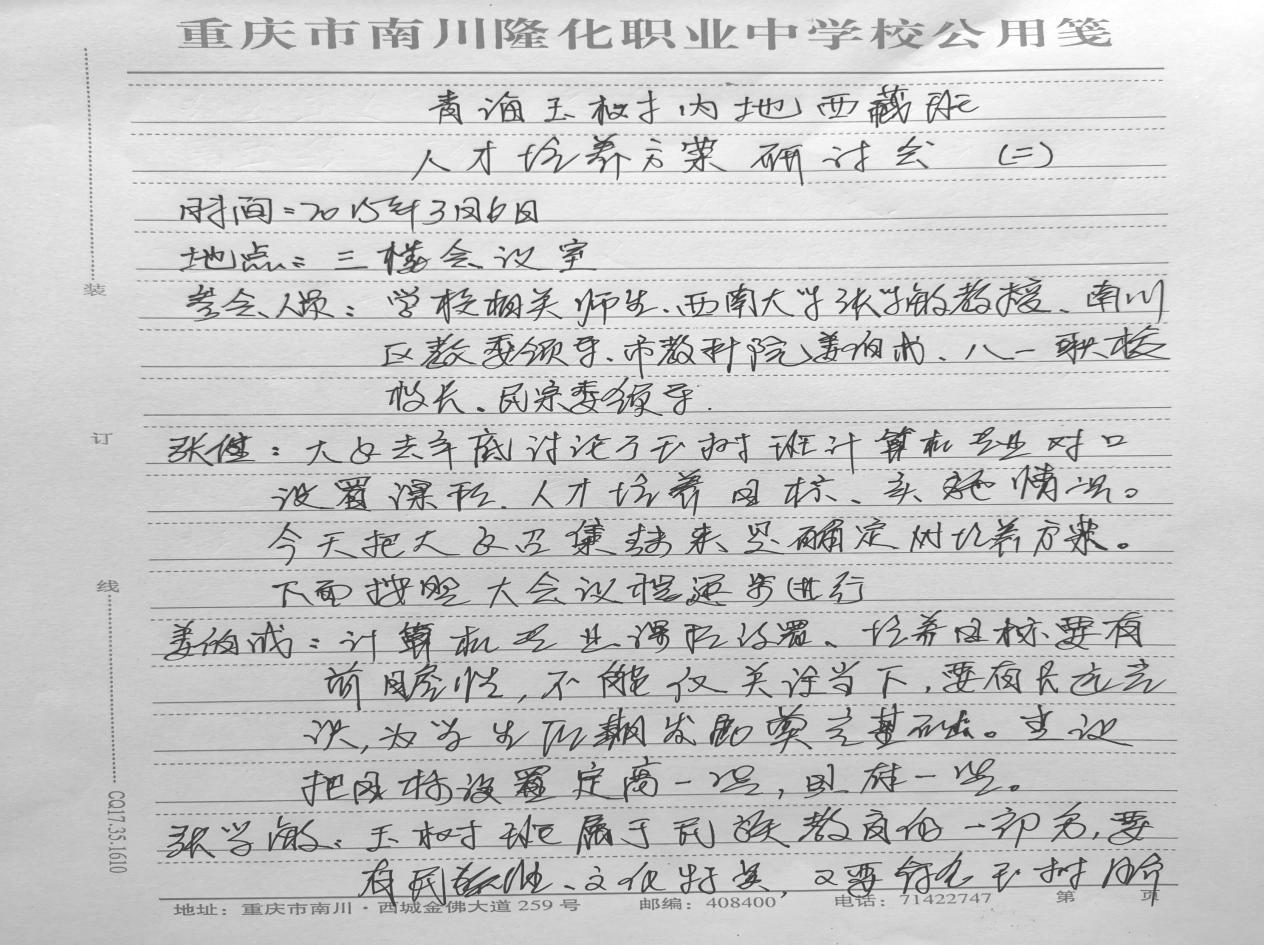 重庆市南川隆化职业中学校公用笺
青海玉树内地西藏班
人才培养方案研讨会 (二)
时间:2015年3月6日
地点:三楼会议室
参会人员:学校相关师生、西南大学张学敏教授、南川
区教委领导、市教科院姜伯成、八一联校
校长、民宗委领导.
张健:大家去年底讨论了玉树班计算机专业对口
设置课程、人才培养目标、实施情况。
今天把大家召集起来是确定树培养方案。
下面按照大会议程逐步进行
姜伯成:计算机专业课程设置、培养目标要有
前瞻性,不能仅关注当下,要有长远意
识,为学生后期发展奠定基础。建议
把目标设置定高一些,更准一些。
张学敏:玉树班属于民族教育的一部分,要
有民族性、文化特点,又要符合玉树
装
订
线
CQ17.35.1610
地址:重庆市南川·西城金佛大道259号 邮编:408400 电话:71422747 第 页